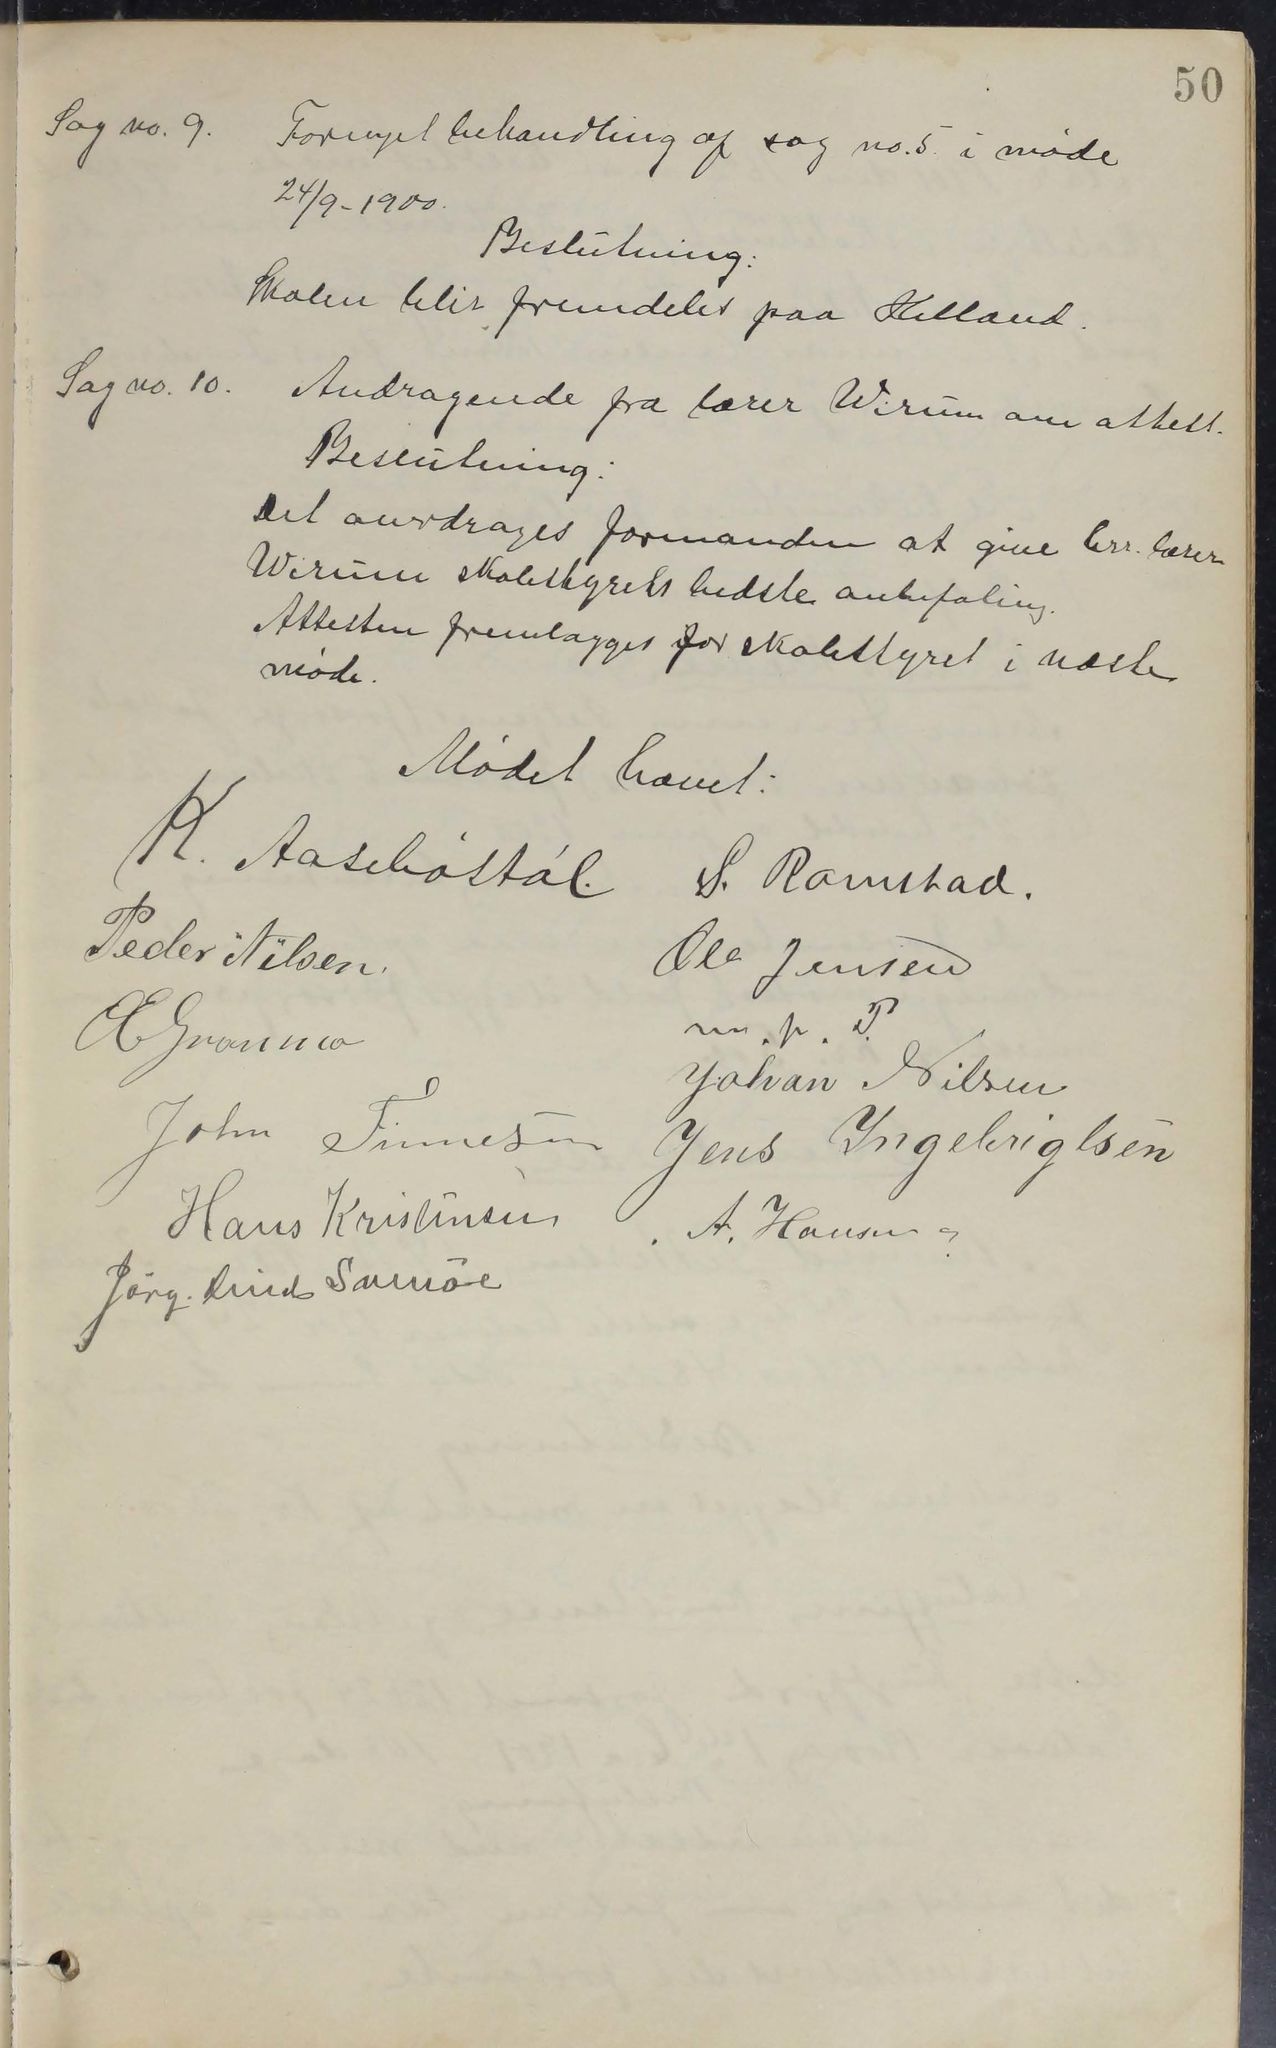 50
Sag no. 9. Fornyet behandling af sag no. 5 i møde
24/9-1900.
Beslutning:
Skolen blir fremdeles paa Helland.
Sag no. 10. Andragende fra lærer Wirum om attest.
Beslutning:
Det overdrages formanden at give hrr. lærer
Wirum skolestyrets bedste anbefaling.
Attesten fremlægges for skolestyret i næste
møde.
Mødet hævet:
K. S. Ramstad.
Peder Nilsen. Ole Jensen
m. p. P.
Johan Nilsen
John Jens Ingebrigtsen
Hans Kristensen A. Hansen
Jörg.